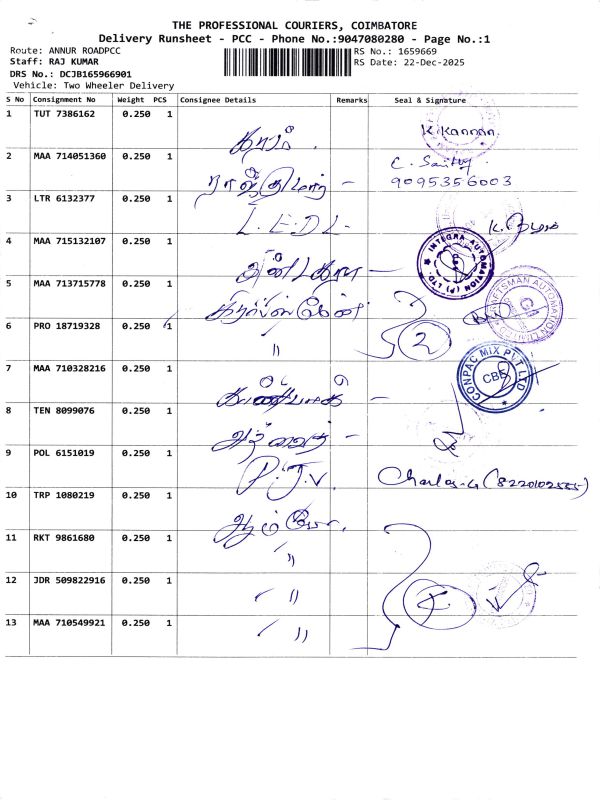 THE PROFESSIONAL COURIERS, COIMBATORE
Delivery Runsheet - PCC - Phone No.:9047080280 - Page No.:1
Route: ANNUR ROADPCC
RS No.: 1659669
Staff: RAJ KUMAR
RS Date: 22-Dec-2025
DRS No.: DCJB165966901
Vehicle: Two Wheeler Delivery
S No Consignment No Weight PCS Consignee Details Remarks Seal & Signature
1 TUT 7386162 0.250 1 K.Kannan.
2 MAA 714051360 0.250 1 ராஜ்குமார் -
9095356003
3 LTR 6132377 0.250 1 L.E.D.L.
4 MAA 715132107 0.250 1 INTEGRA AUTOMATION (P) LTD.
5 MAA 713715778 0.250 1 CRAFTSMAN AUTOMATION LIMITED
6 PRO 18719328 0.250 1 " 2
7 MAA 710328216 0.250 1 CONPAC MIX PVT LTD CBE
8 TEN 8099076 0.250 1
9 POL 6151019 0.250 1 P.J.V. Charles.G
10 TRP 1080219 0.250 1
11 RKT 9861680 0.250 1 "
12 JDR 509822916 0.250 1 "
13 MAA 710549921 0.250 1 "